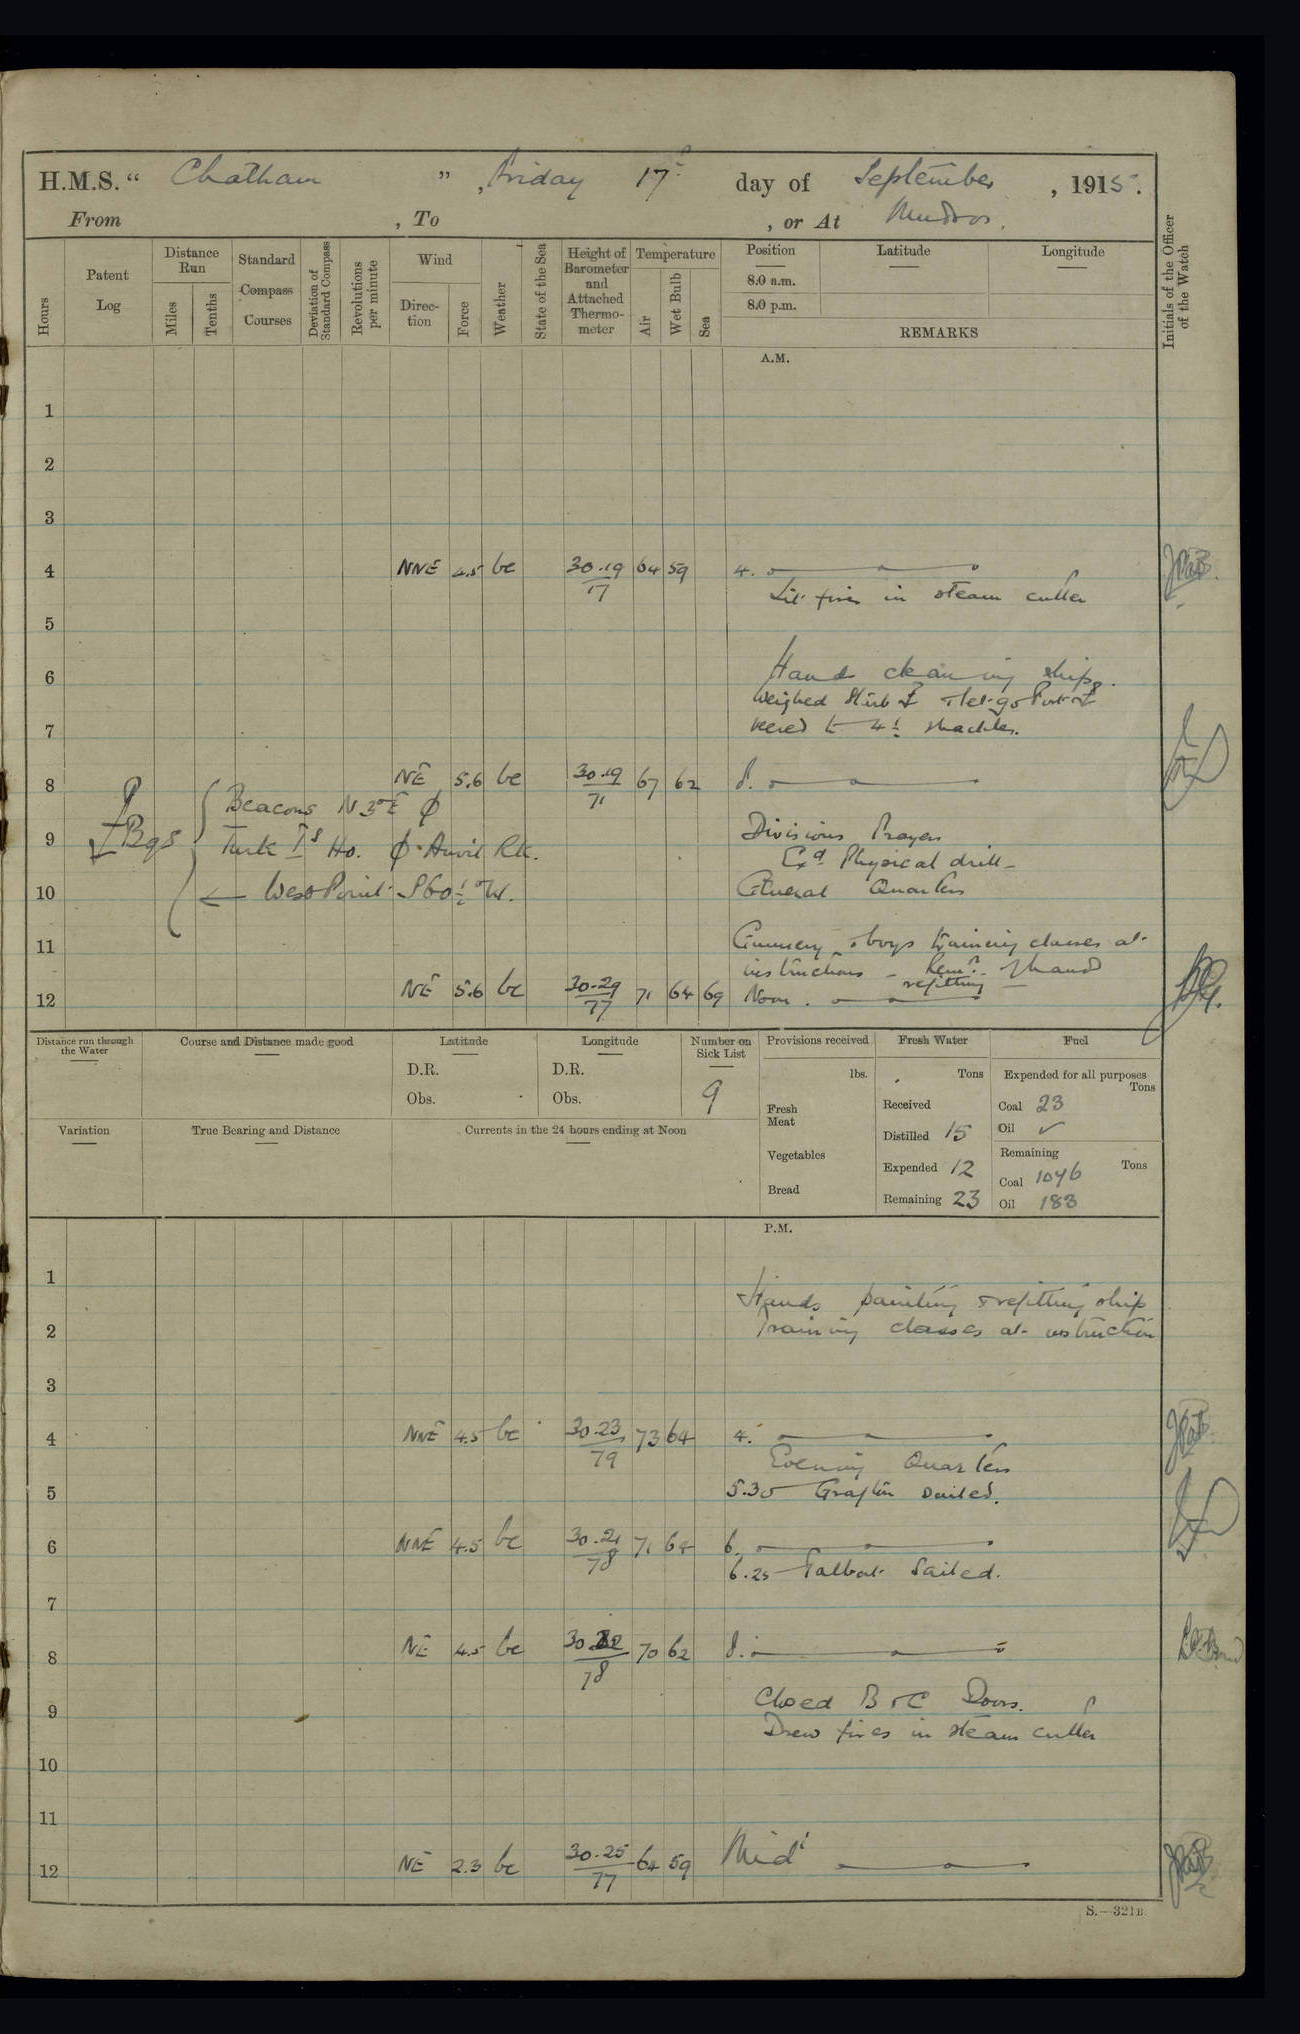 H.M.S. “ Chatham ” , Friday 17th day of September , 1915.
From , To , or At Mudros.
Hours
Patent Log
Distance Run
Miles
Tenths
Standard Compass Courses
Deviation of Standard Compass
Revolutions per minute
Wind
Direction
Force
Weather
State of the Sea
Height of Barometer and Attached Thermometer
Temperature
Air
Wet Bulb
Sea
Position
8.0 a.m.
8.0 p.m.
Latitude
Longitude
REMARKS
Initials of the Officer of the Watch
A.M.
1
2
3
4 NNE 4.5 bc 30.19/77 64 59 4.
Lit fires in steam cutter
5
6 Hands cleaning ship.
Weighed Starb ⚓ & let go Port ⚓
7 veered to 4½ shackles.
8 NE 5.6 bc 30.19/71 67 62 8.
⚓ Bgs { Beacons N3°E ϕ
9 Turk Is Ho. ϕ Anvil Rk.
← West Point S60½°W.
Divisions Prayers
Exd Physical drill
10 General Quarters
11 Gunnery & boys training classes at
instructions - Remr of hands
refitting
12 NE 5.6 bc 30.29/77 71 64 69 Noon.
Distance run through the Water
Course and Distance made good
Latitude
D.R.
Obs.
Longitude
D.R.
Obs.
Number on Sick List
9
Provisions received
lbs.
Fresh Meat
Vegetables
Bread
Fresh Water
Tons
Received
Distilled 15
Expended 12
Remaining 23
Fuel
Expended for all purposes
Tons
Coal 23
Oil ✓
Remaining
Tons
Coal 1046
Oil 183
Variation
True Bearing and Distance
Currents in the 24 hours ending at Noon
P.M.
1
Hands painting & refitting ship
2 Training classes at instruction
3
4 NNE 4.5 bc 30.23/79 73 64 4.
Evening Quarters
5 5.30 Grafton sailed.
6 NNE 4.5 bc 30.21/78 71 64 6.
6.25 Talbot Sailed.
7
8 NE 4.5 bc 30.22/78 70 62 8.
9 Closed B & C Doors.
Drew fires in steam cutter
10
11
12 NE 2.3 bc 30.25/77 64 59 Midt
S.—321B.